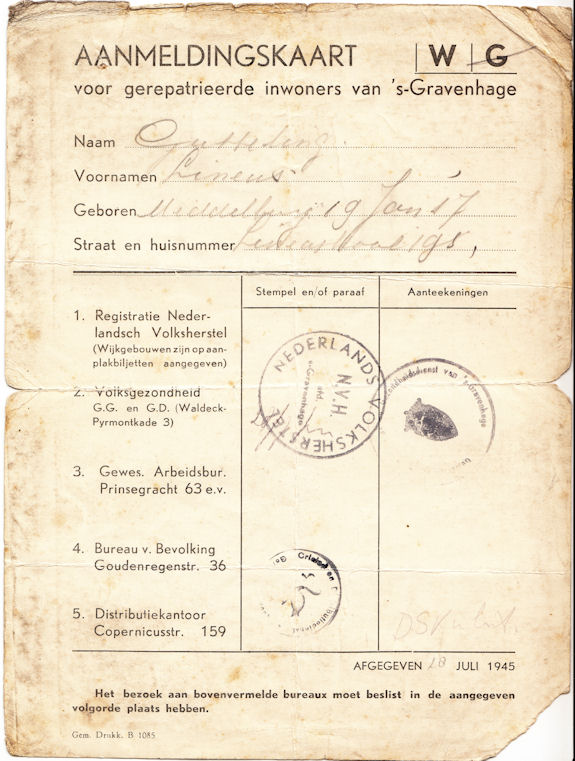 AANMELDINGSKAART |W|G
voor gerepatrieerde inwoners van 's-Gravenhage
Naam Gutteling.
Voornamen Lineus
Geboren Middelburg 19 Jan 17
Straat en huisnummer 195,
Stempel en/of paraaf
Aanteekeningen
1. Registratie Neder-
landsch Volksherstel
(Wijkgebouwen zijn op aan-
plakbiljetten aangegeven)
NEDERLANDS VOLKSHERSTEL
N.V.H.
afd.
's-Gravenhage
2. Volksgezondheid
G.G. en G.D. (Waldeck-
Pyrmontkade 3)
van 's-Gravenhage
3. Gewes. Arbeidsbur.
Prinsegracht 63 e.v.
4. Bureau v. Bevolking
Goudenregenstr. 36
5. Distributiekantoor
Copernicusstr. 159
AFGEGEVEN 28 JULI 1945
Het bezoek aan bovenvermelde bureaux moet beslist in de aangegeven
volgorde plaats hebben.
Gem. Drukk. B 1085